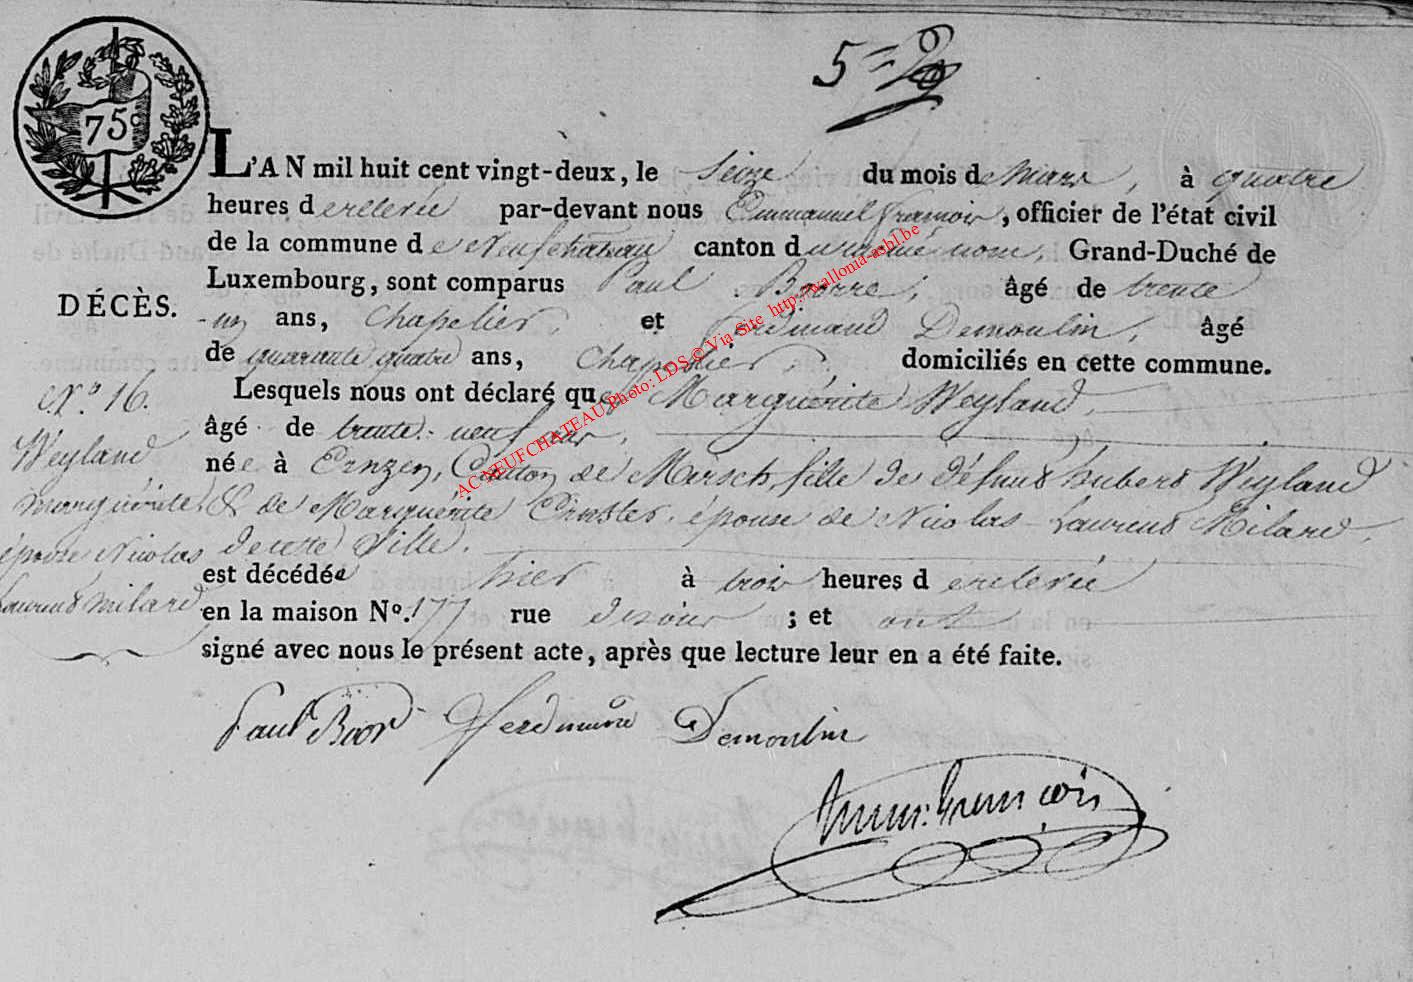 75c
5=
L'AN mil huit cent vingt-deux, le Seize du mois de Mars, à quatre
heures de relevée par-devant nous Emmanuel françois, officier de l'état civil
de la commune de Neufchateau canton du même nom, Grand-Duché de
Luxembourg, sont comparus Paul âgé de trente
DÉCÈS.
-un ans, Chapelier, et ferdinand Demoulin, âgé
de quarante quatre ans, Chapelier, domiciliés en cette commune.
Lesquels nous ont déclaré que Marguérite Weyland,
âgé de trente-neuf ans,
née à Ernzen, Canton de Mersch, fille de défunt hubert Weyland
& de Marguérite Ernster, épouse de Nicolas-Laurent Milard,
de cette Ville.
est décédée hier à trois heures de relevée
en la maison No. 177 rue ; et ont
signé avec nous le présent acte, après que lecture leur en a été faite.
No. 16.
Weyland
marguérite,
épouse Nicolas
Laurent milard
Paul Ferdinand Demoulin
Emm. françois
AC NEUFCHATEAU Photo: LDS © Via Site http://wallonia-asbl.be